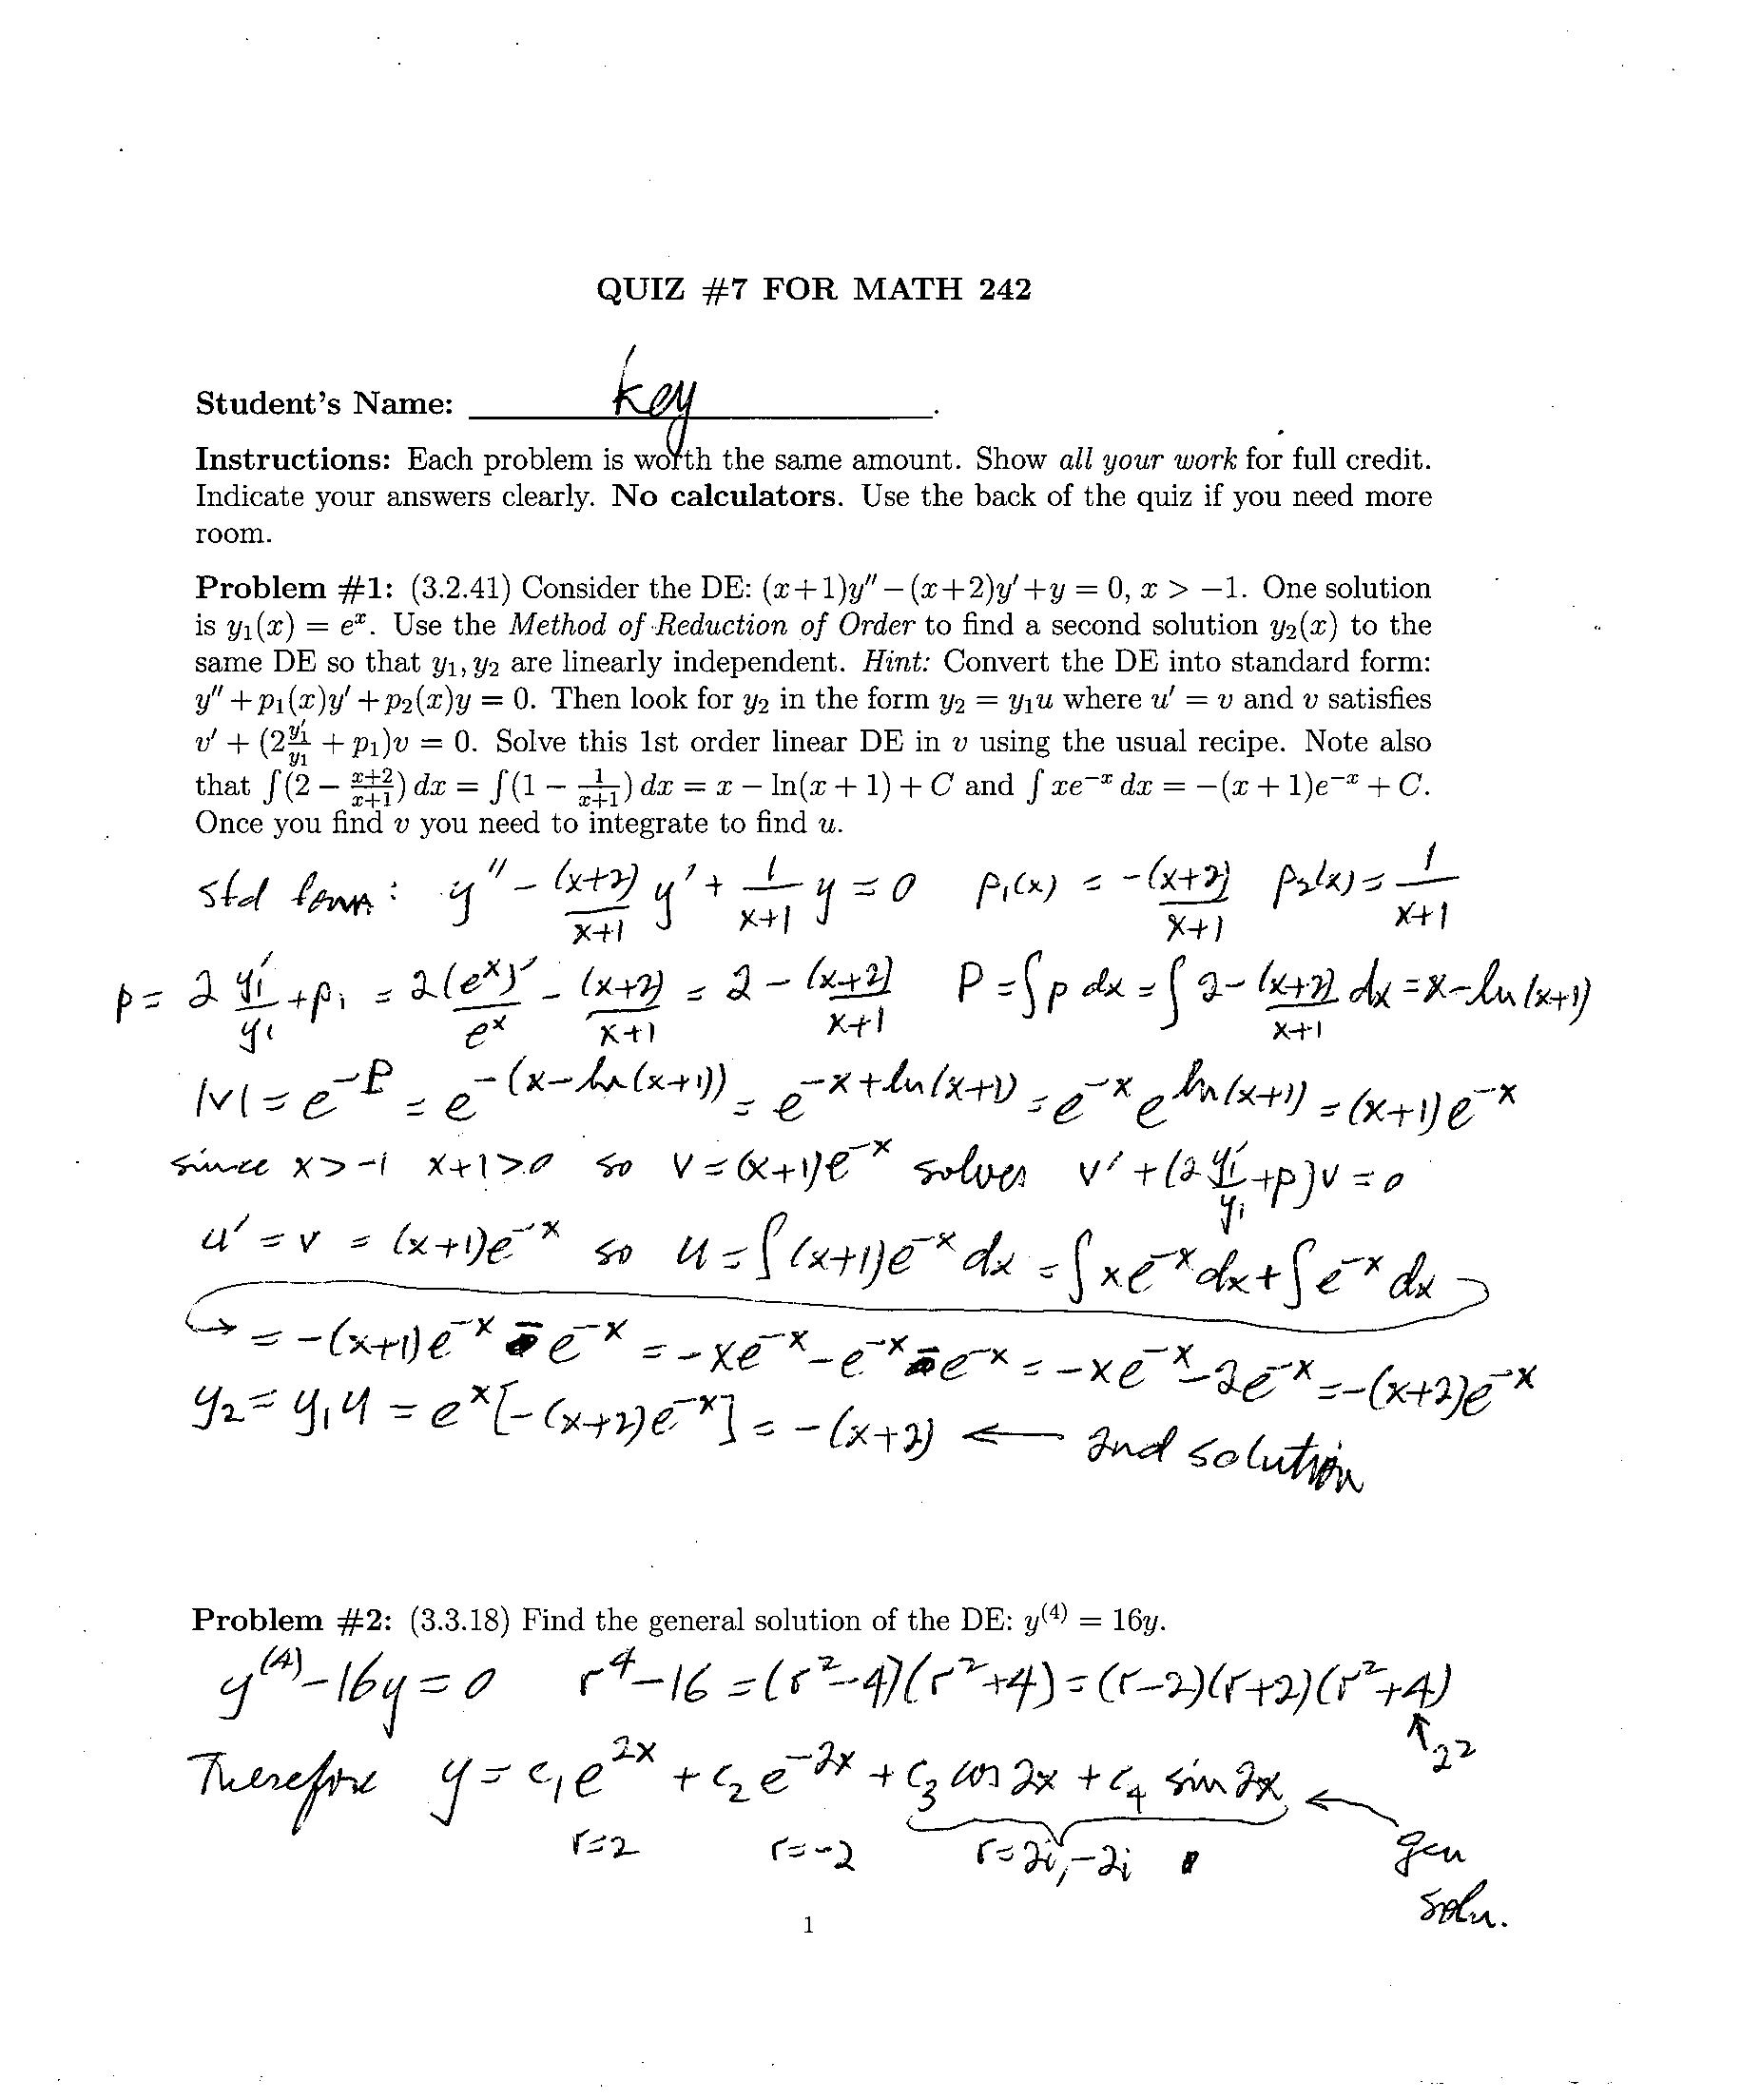 QUIZ #7 FOR MATH 242
Student's Name: key .
Instructions: Each problem is worth the same amount. Show all your work for full credit.
Indicate your answers clearly. No calculators. Use the back of the quiz if you need more
room.
Problem #1: (3.2.41) Consider the DE: (x+1)y″ − (x+2)y′ + y = 0, x > −1. One solution
is y₁(x) = eˣ. Use the Method of Reduction of Order to find a second solution y₂(x) to the
same DE so that y₁, y₂ are linearly independent. Hint: Convert the DE into standard form:
y″ + p₁(x)y′ + p₂(x)y = 0. Then look for y₂ in the form y₂ = y₁u where u′ = v and v satisfies
v′ + (2 y₁′/y₁ + p₁)v = 0. Solve this 1st order linear DE in v using the usual recipe. Note also
that ∫(2 − (x+2)/(x+1)) dx = ∫(1 − 1/(x+1)) dx = x − ln(x + 1) + C and ∫ xe⁻ˣ dx = −(x + 1)e⁻ˣ + C.
Once you find v you need to integrate to find u.
std form: y″ − (x+2)/(x+1) y′ + 1/(x+1) y = 0 p₁(x) = −(x+2)/(x+1) p₂(x) = 1/(x+1)
p = 2 y₁′/y₁ + p₁ = 2(eˣ)′/eˣ − (x+2)/(x+1) = 2 − (x+2)/(x+1) P = ∫p dx = ∫ 2 − (x+2)/(x+1) dx = x − ln(x+1)
|v| = e^(−P) = e^(−(x−ln(x+1))) = e^(−x+ln(x+1)) = e⁻ˣ e^(ln(x+1)) = (x+1)e⁻ˣ
since x > −1 x+1 > 0 so v = (x+1)e⁻ˣ solves v′ + (2 y₁′/y₁ + p)v = 0
u′ = v = (x+1)e⁻ˣ so u = ∫(x+1)e⁻ˣ dx = ∫xe⁻ˣ dx + ∫e⁻ˣ dx
→ = −(x+1)e⁻ˣ − e⁻ˣ = −xe⁻ˣ − e⁻ˣ − e⁻ˣ = −xe⁻ˣ − 2e⁻ˣ = −(x+2)e⁻ˣ
y₂ = y₁u = eˣ[−(x+2)e⁻ˣ] = −(x+2) ← 2nd solution
Problem #2: (3.3.18) Find the general solution of the DE: y⁽⁴⁾ = 16y.
y⁽⁴⁾ − 16y = 0 r⁴ − 16 = (r² − 4)(r² + 4) = (r−2)(r+2)(r² + 4)
↑ 2²
Therefore y = c₁e²ˣ + c₂e⁻²ˣ + c₃ cos 2x + c₄ sin 2x ← gen soln.
r=2 r=−2 r=2i,−2i
1